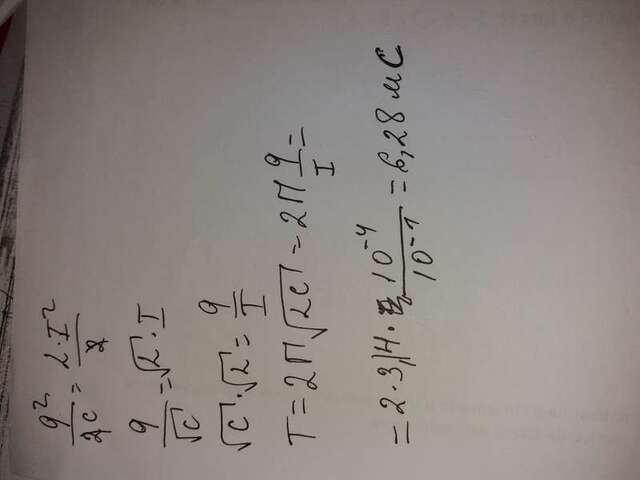 q²/2C = L·I²/2
q/√C = √L · I
√C · √L = q/I
T = 2П√LC = 2П q/I =
= 2·3,14· 10⁻⁴/10⁻¹ = 6,28 мс